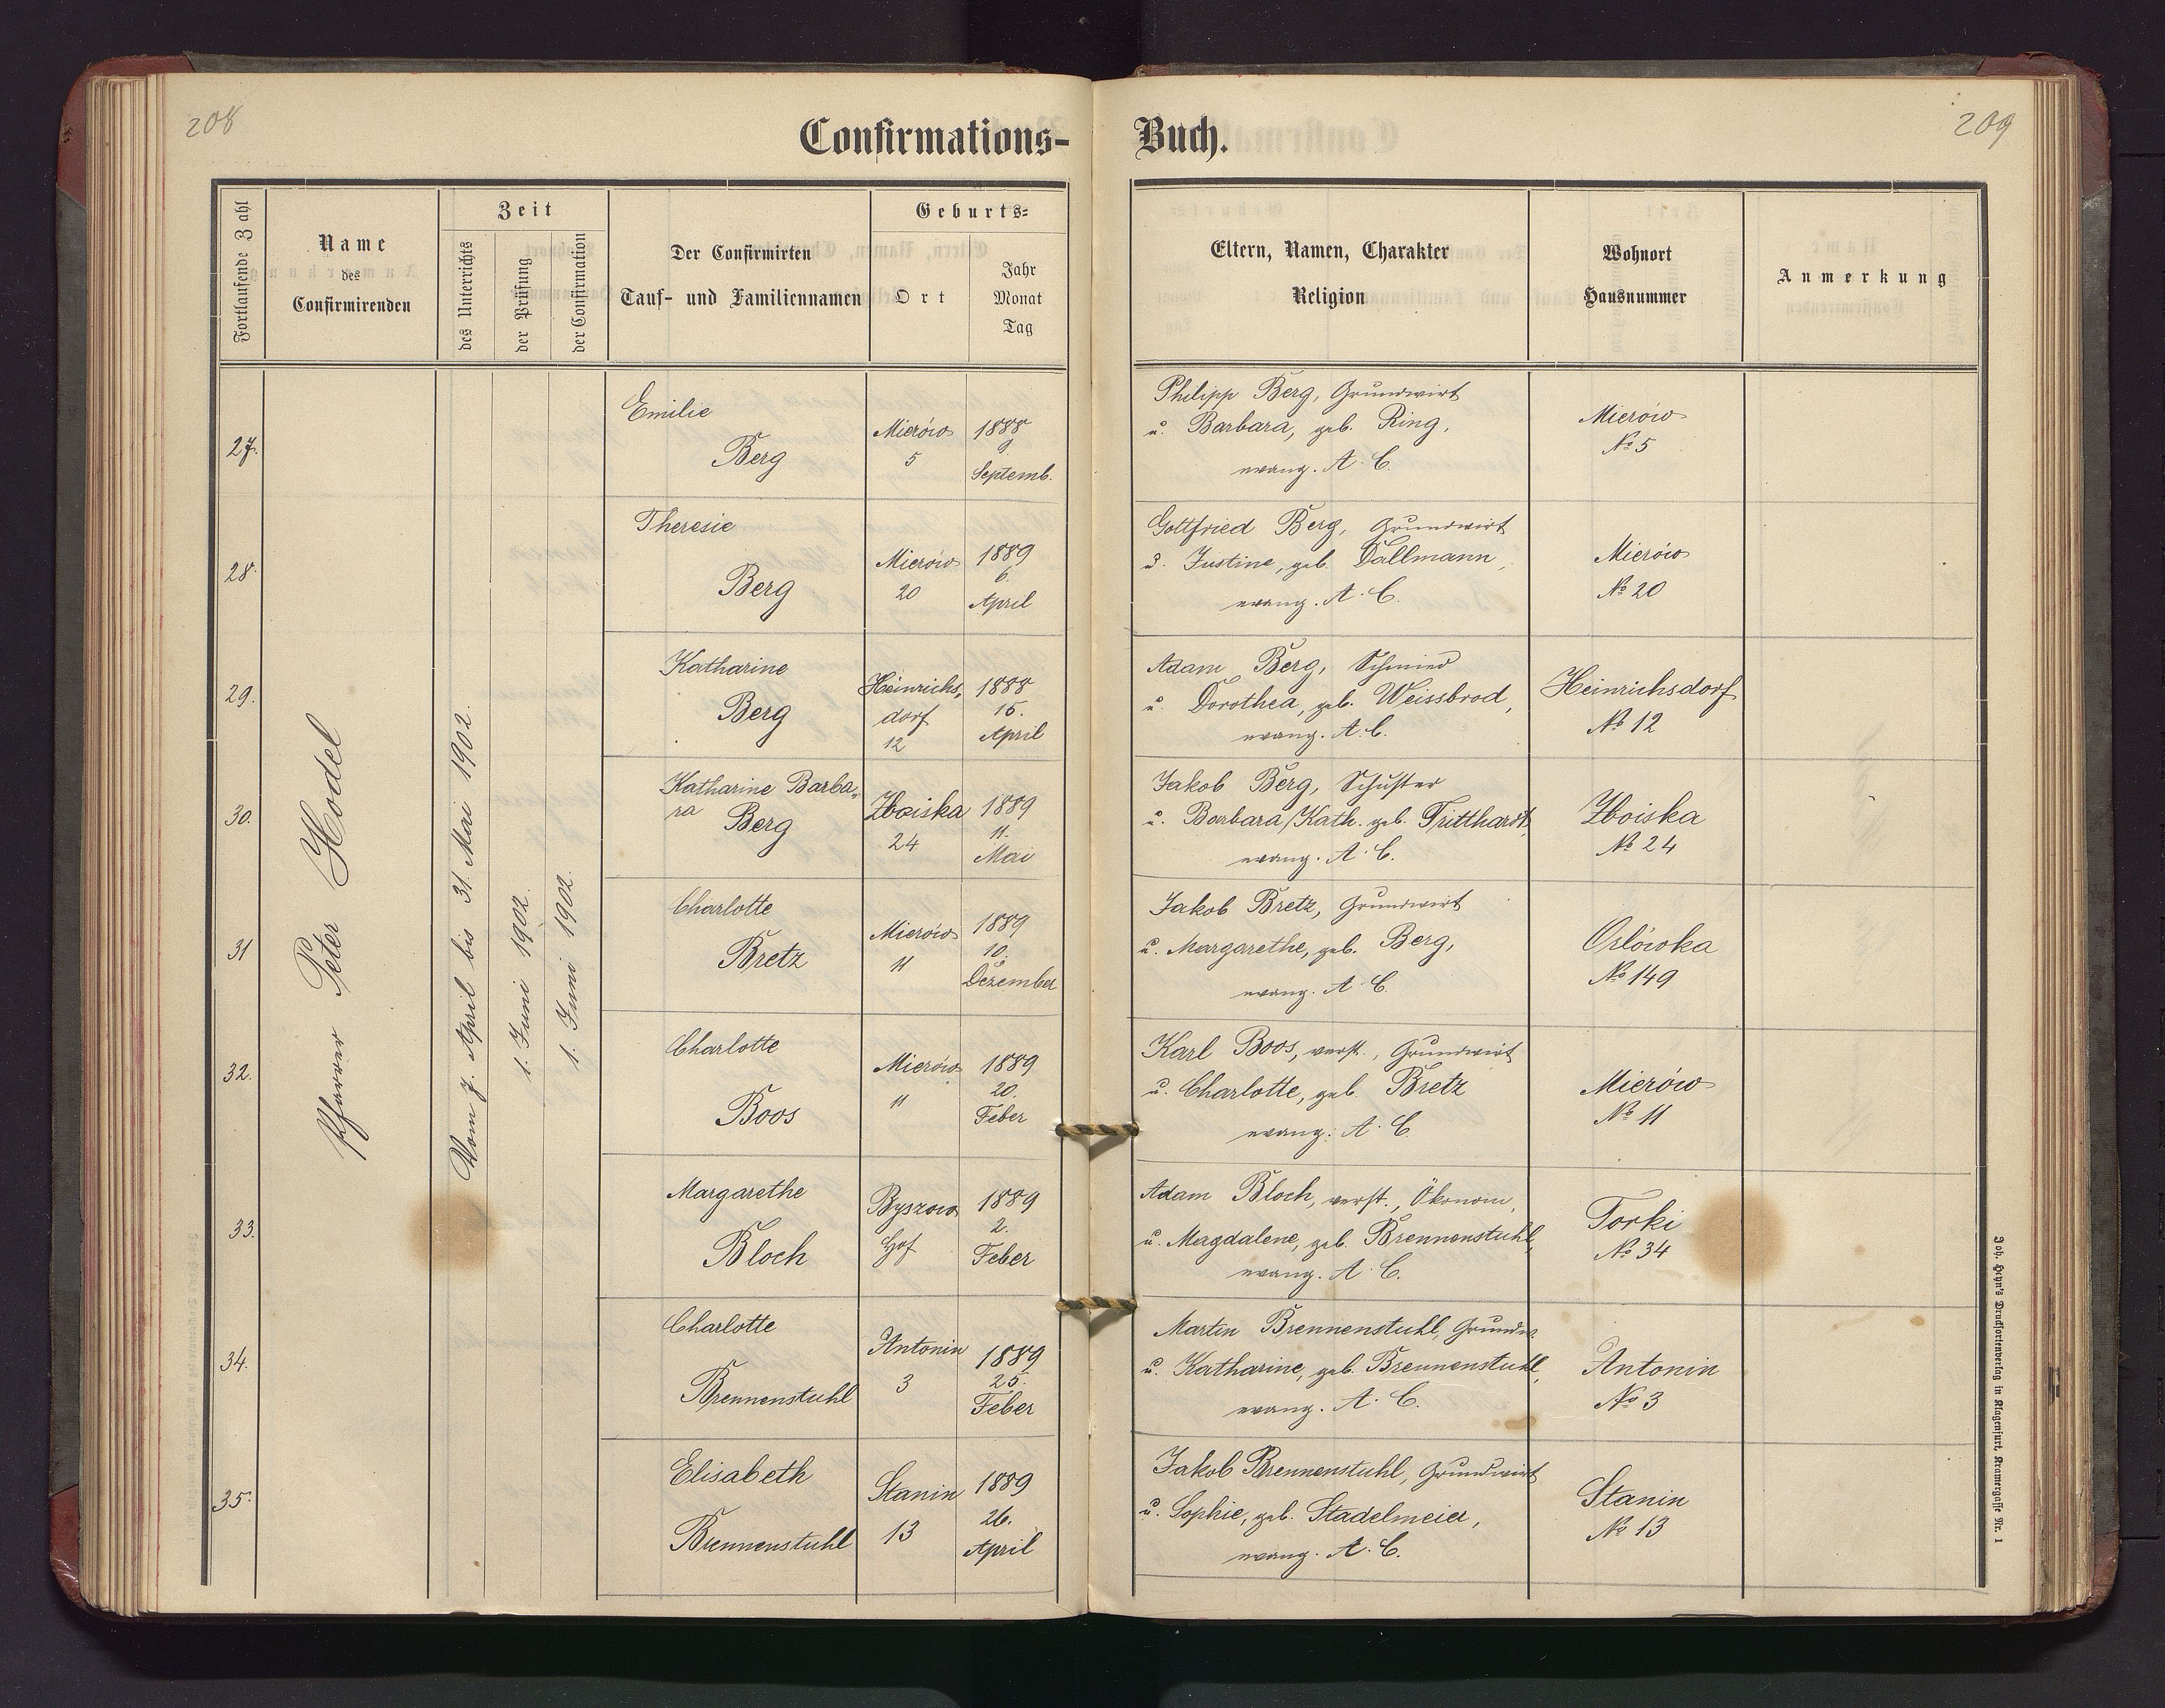 208
Confirmations-
Buch.
209
Fortlaufende Zahl
Name
des
Confirmirenden
Zeit
des Unterrichts
der Prüfung
der Confirmation
Der Confirmirten
Tauf- und Familiennamen
Geburts-
Ort
Jahr
Monat
Tag
Eltern, Namen, Charakter
Religion
Wohnort
Hausnummer
Anmerkung
Pfarrer Peter Hodel
Vom 7. April bis 31. Mai 1902.
1. Juni 1902.
1. Juni 1902.
27.
Emilie
Berg
Mierów
5
1888
9
Septemb.
Philipp Berg, Grundwirt
u. Barbara, geb. Ring,
evang. A. C.
Mierów
No 5
28.
Theresie
Berg
Mierów
20
1889
6.
April
Gottfried Berg, Grundwirt
u. Justine, geb. Dallmann,
evang. A. C.
Mierów
No 20
29.
Katharine
Berg
Heinrichs-
dorf
12
1888
16.
April
Adam Berg, Schmied
u. Dorothea, geb. Weissbrod,
evang. A. C.
Heinrichsdorf
No 12
30.
Katharine Barba-
ra
Berg
Zboiska
24
1889
11.
Mai
Jakob Berg, Schuster
u. Barbara/Kath. geb. Tritthardt,
evang. A. C.
Zboiska
No 24
31
Charlotte
Bretz
Mierów
11
1889
10.
Dezember
Jakob Bretz, Grundwirt
u. Margarethe, geb. Berg,
evang. A. C.
Orlówka
No 149
32.
Charlotte
Boos
Mierów
11
1889
20.
Feber
Karl Boos, verst., Grundwirt
u. Charlotte, geb. Bretz
evang. A. C.
Mierów
No 11
33.
Margarethe
Bloch
Byszow
Hof
1889
2.
Feber
Adam Bloch, verst., Ökonom,
u. Magdalene, geb. Brennenstuhl,
evang. A. C.
Torki
No 34
34.
Charlotte
Brennenstuhl
Antonin
3
1889
25.
Feber
Martin Brennenstuhl, Grundw.
u. Katharine, geb. Brennenstuhl,
evang. A. C.
Antonin
No 3
35.
Elisabeth
Brennenstuhl
Stanin
13
1889
26.
April
Jakob Brennenstuhl, Grundwirt
u. Sophie, geb. Stadelmeier,
evang. A. C.
Stanin
No 13
Joh. Heyn's Drucksortenverlag in Klagenfurt, Kramergasse Nr. 1